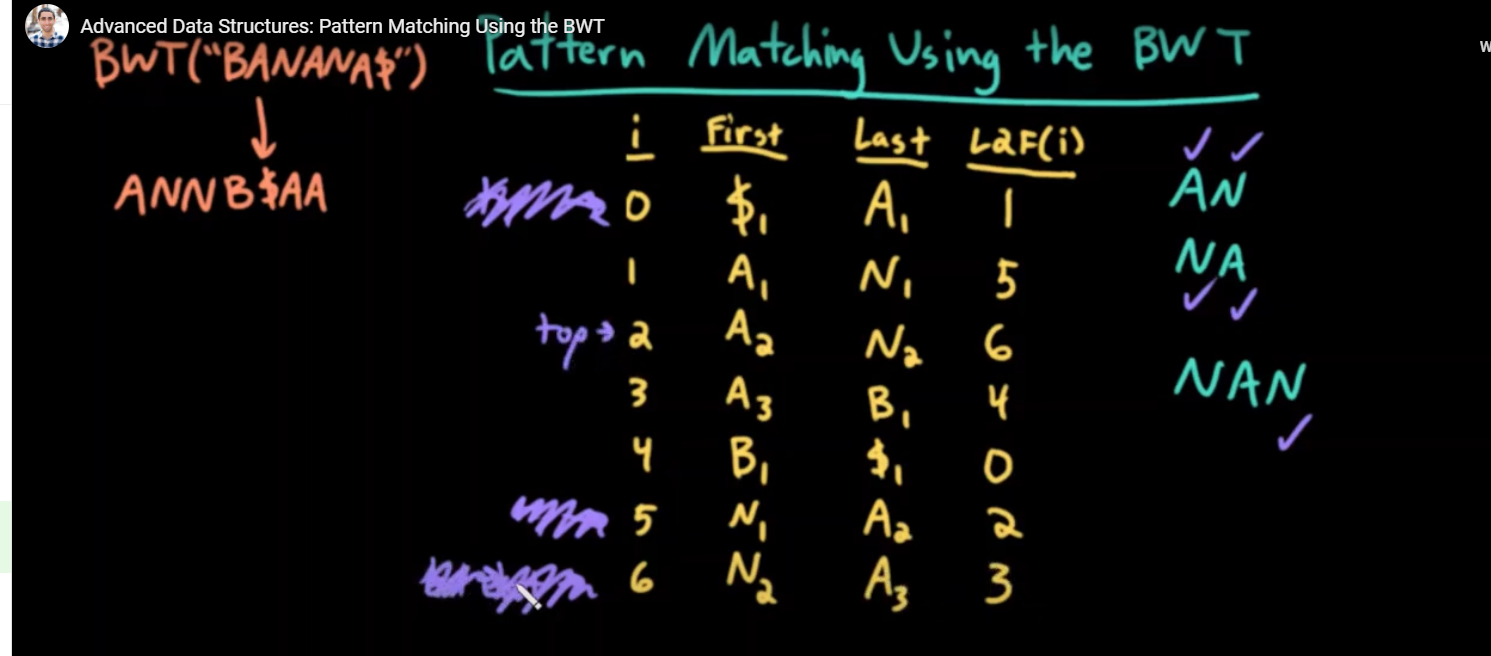 Advanced Data Structures: Pattern Matching Using the BWT
BWT("BANANA$") Pattern Matching Using the BWT
i First Last L2F(i)
ANNB$AA
0 $₁ A₁ 1 AN
1 A₁ N₁ 5 NA
top → 2 A₂ N₂ 6
3 A₃ B₁ 4 NAN
4 B₁ $₁ 0
5 N₁ A₂ 2
6 N₂ A₃ 3
W